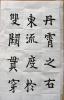 丹霄之右
東流度於
雙闕貫穿